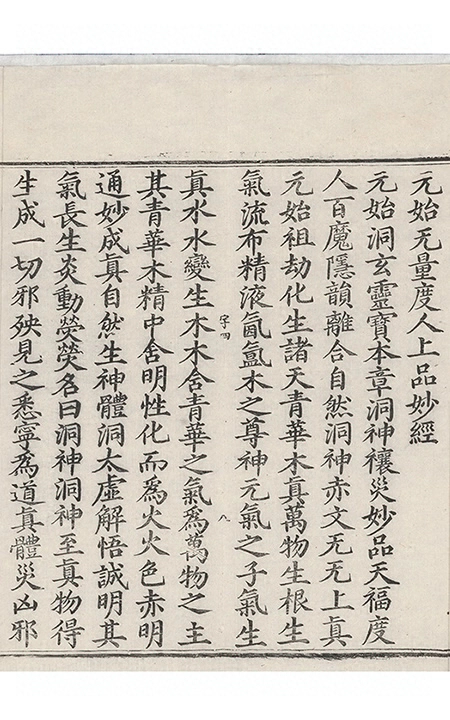 元始无量度人上品妙經
元始洞玄靈寶本章洞神禳災妙品天福度
人百魔隱韻離合自然洞神赤文无无上真
元始祖劫化生諸天青華木真萬物生根生
氣流布精液氤氳木之尊神元氣之子氣生
字四 八
真水水變生木木含青華之氣為萬物之主
其青華木精中含明性化而為火火色赤明
通妙成真自然生神體洞太虛解悟誠明其
氣長生炎動熒熒名曰洞神洞神至真物得
生成一切邪殃見之悉寧為道真體災凶邪